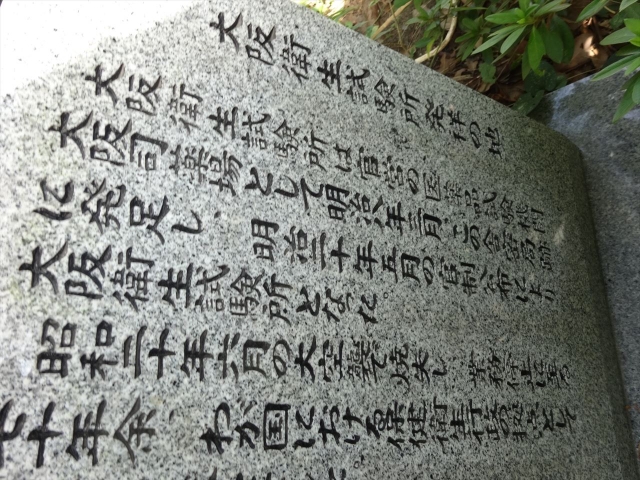 大阪衛生試験所発祥の地
大阪衛生試験所は官営の医薬品試験機関
大阪司薬場として明治八年三月、この舎密局跡
に発足し、明治二十年五月の官制公布により
大阪衛生試験所となった。
昭和二十年六月の大空襲で焼失し、
七十年余、わが国における保健衛生行政の として